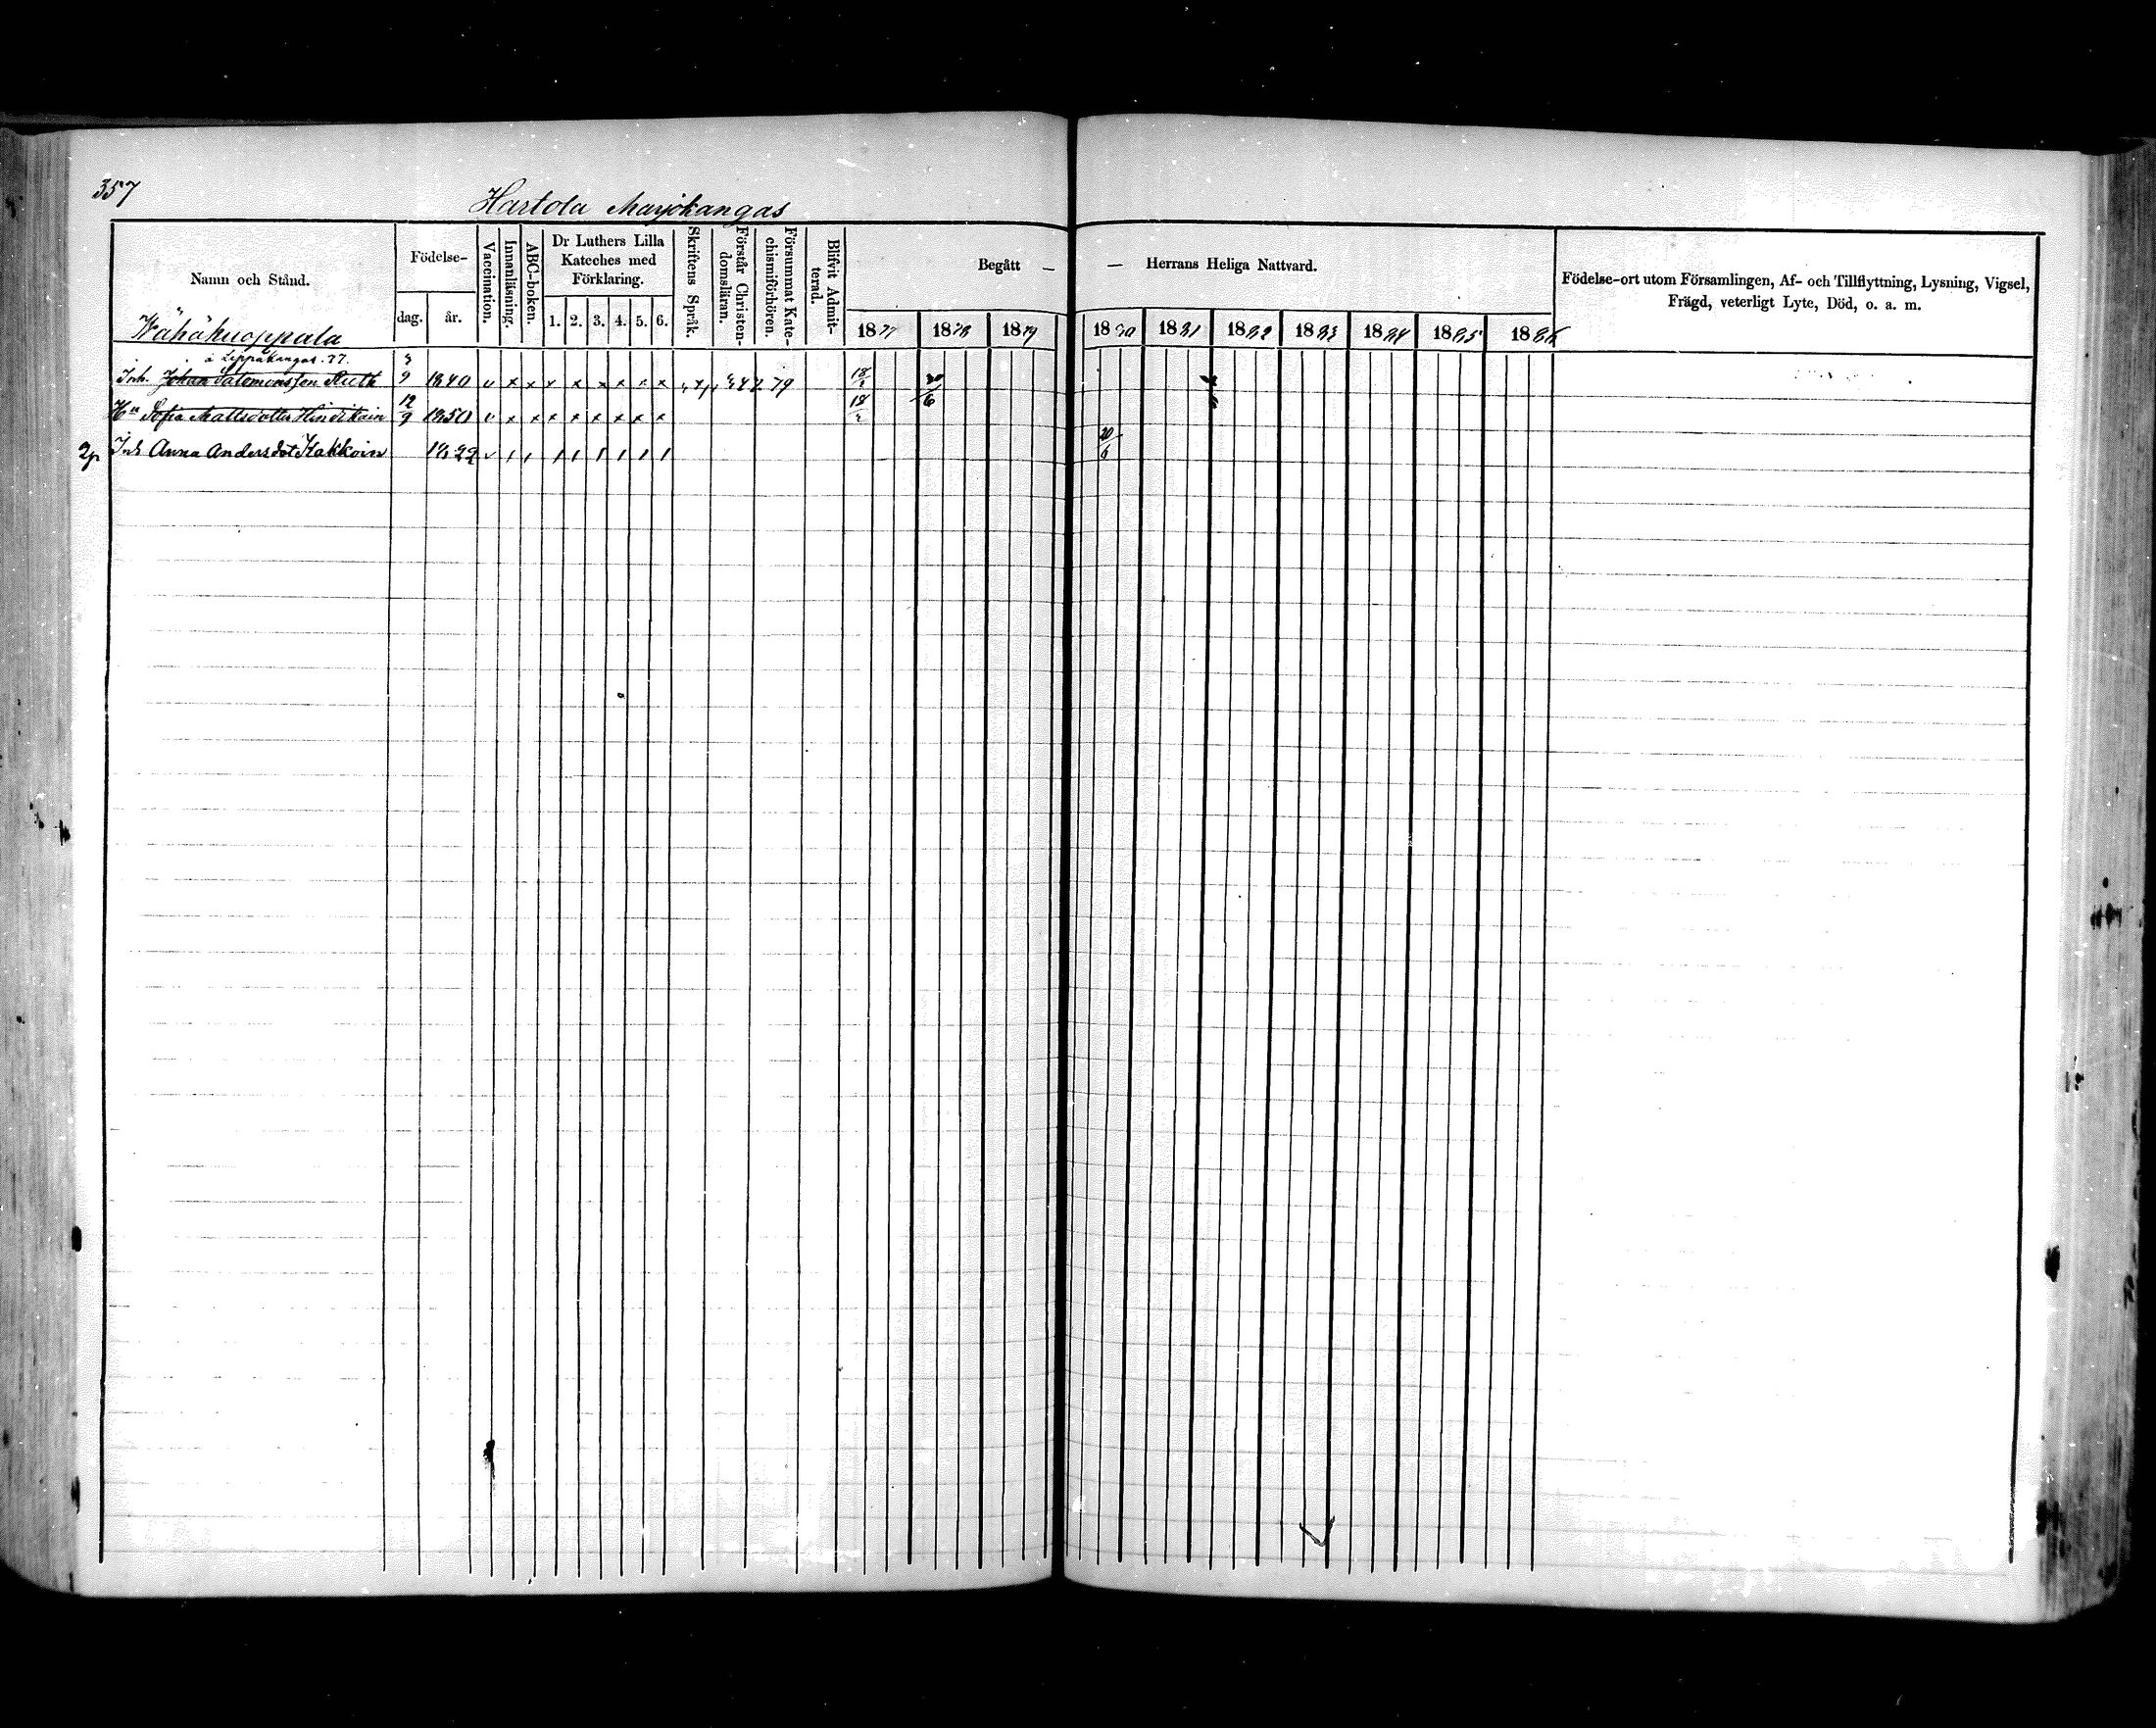 357
Hartola Marjokangas
Namn och Stånd.
Födelse-
dag.
år.
Vaccination.
Innanläsning.
ABC-boken.
Dr Luthers Lilla
Kateches med
Förklaring.
1. 2. 3. 4. 5. 6.
Skriftens Språk.
Förstår Christen-
domsläran.
Försummat Kate-
chismiförhören.
Blifvit Admit-
terad.
Begått —
— Herrans Heliga Nattvard.
1877 1878 1879 1880 1881 1882 1883 1884 1885 1886
Födelse-ort utom Församlingen, Af- och Tillflyttning, Lysning, Vigsel,
Frägd, veterligt Lyte, Död, o. a. m.
Wähäkuoppala
å Leppäkangas. 77.
Inh. Johan Salomonsson Ruth 1840 v x x x x x x x x 79 18/2
Hu Sofia Mattsdotter Hindikain 12/9 1850 v x x x x x x x x 18/2
Inh Anna Andersdot Kakkoin 1822 20/6